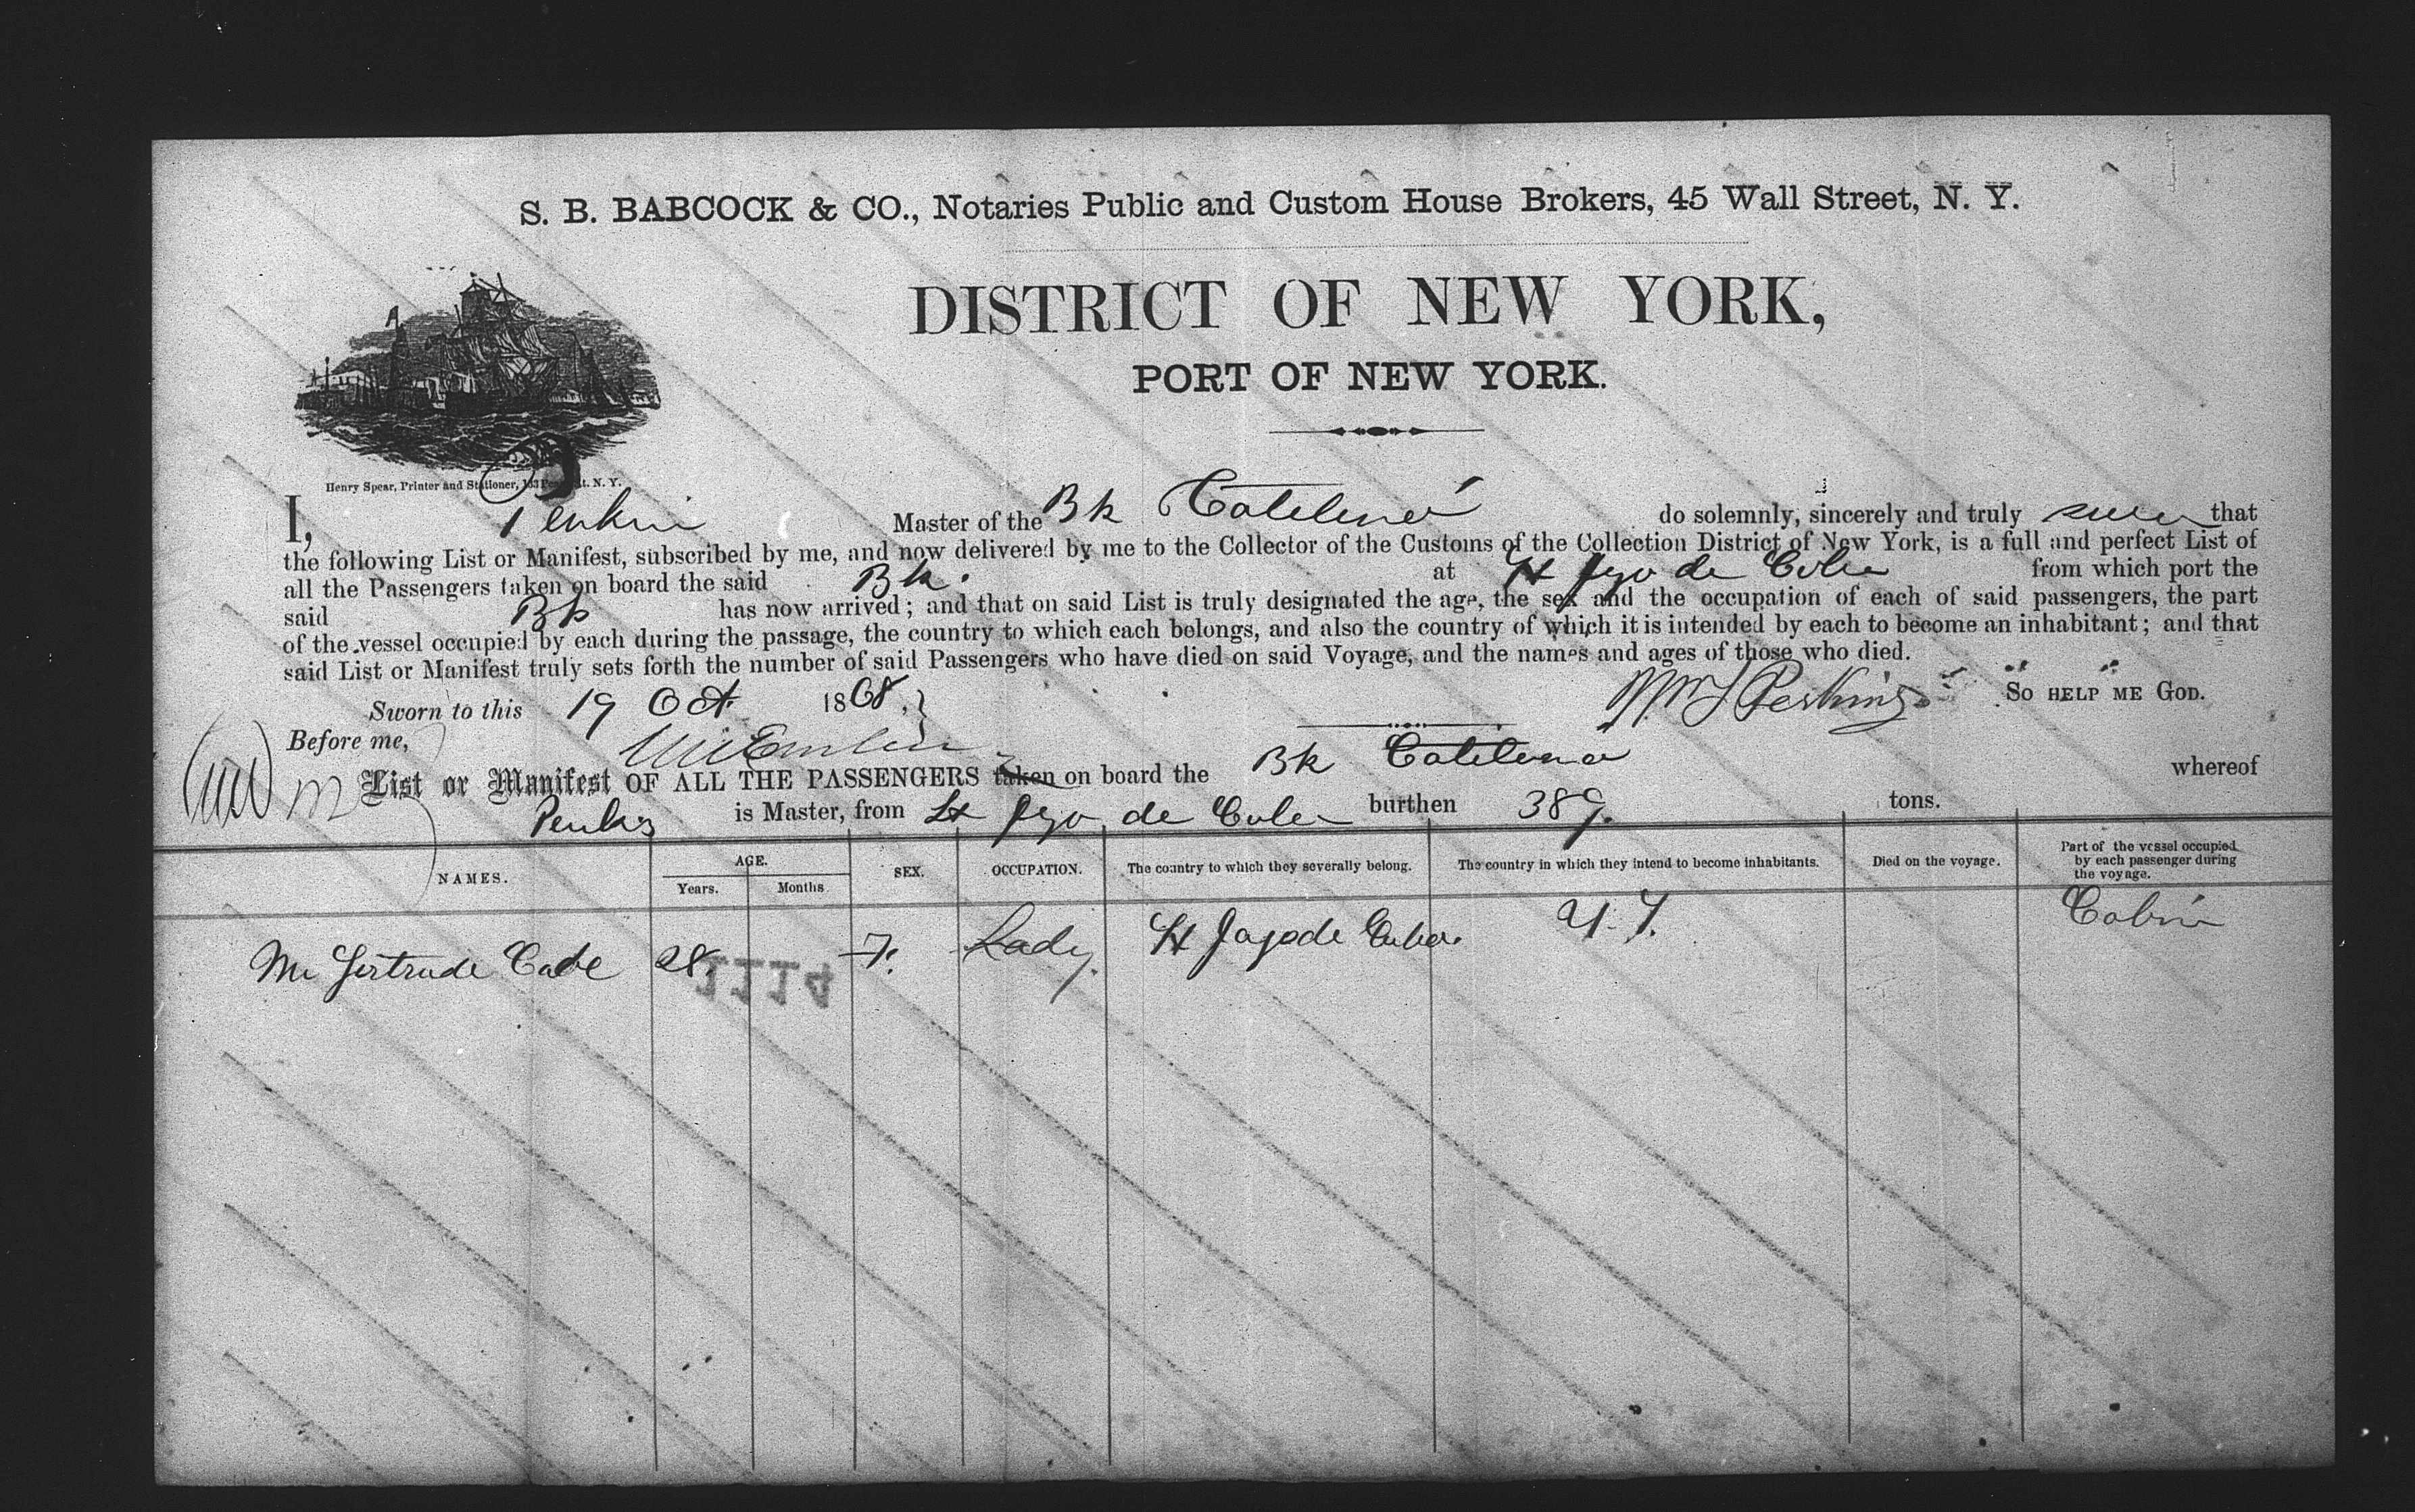 S. B. BABCOCK & CO., Notaries Public and Custom House Brokers, 45 Wall Street, N. Y.
DISTRICT OF NEW YORK,
PORT OF NEW YORK.
Henry Spear, Printer and Stationer, St. N. Y.
I, Master of the Bk do solemnly, sincerely and truly that
the following List or Manifest, subscribed by me, and now delivered by me to the Collector of the Customs of the Collection District of New York, is a full and perfect List of
all the Passengers taken on board the said Bk. at St Jago de Cuba from which port the
said Bk has now arrived; and that on said List is truly designated the age, the sex and the occupation of each of said passengers, the part
of the vessel occupied by each during the passage, the country to which each belongs, and also the country of which it is intended by each to become an inhabitant; and that
said List or Manifest truly sets forth the number of said Passengers who have died on said Voyage, and the names and ages of those who died.
Perkins SO HELP ME GOD.
Sworn to this 19 Oct. 1868.
Before me,
List or Manifest OF ALL THE PASSENGERS taken on board the Bk whereof
is Master, from St Jago de Cuba burthen 389. tons.
NAMES. AGE. Years. Months. SEX. OCCUPATION. The country to which they severally belong. The country in which they intend to become inhabitants. Died on the voyage. Part of the vessel occupied by each passenger during the voyage.
Gertrude 28. F. Lady. St Jago de Cuba. Cabin
1114